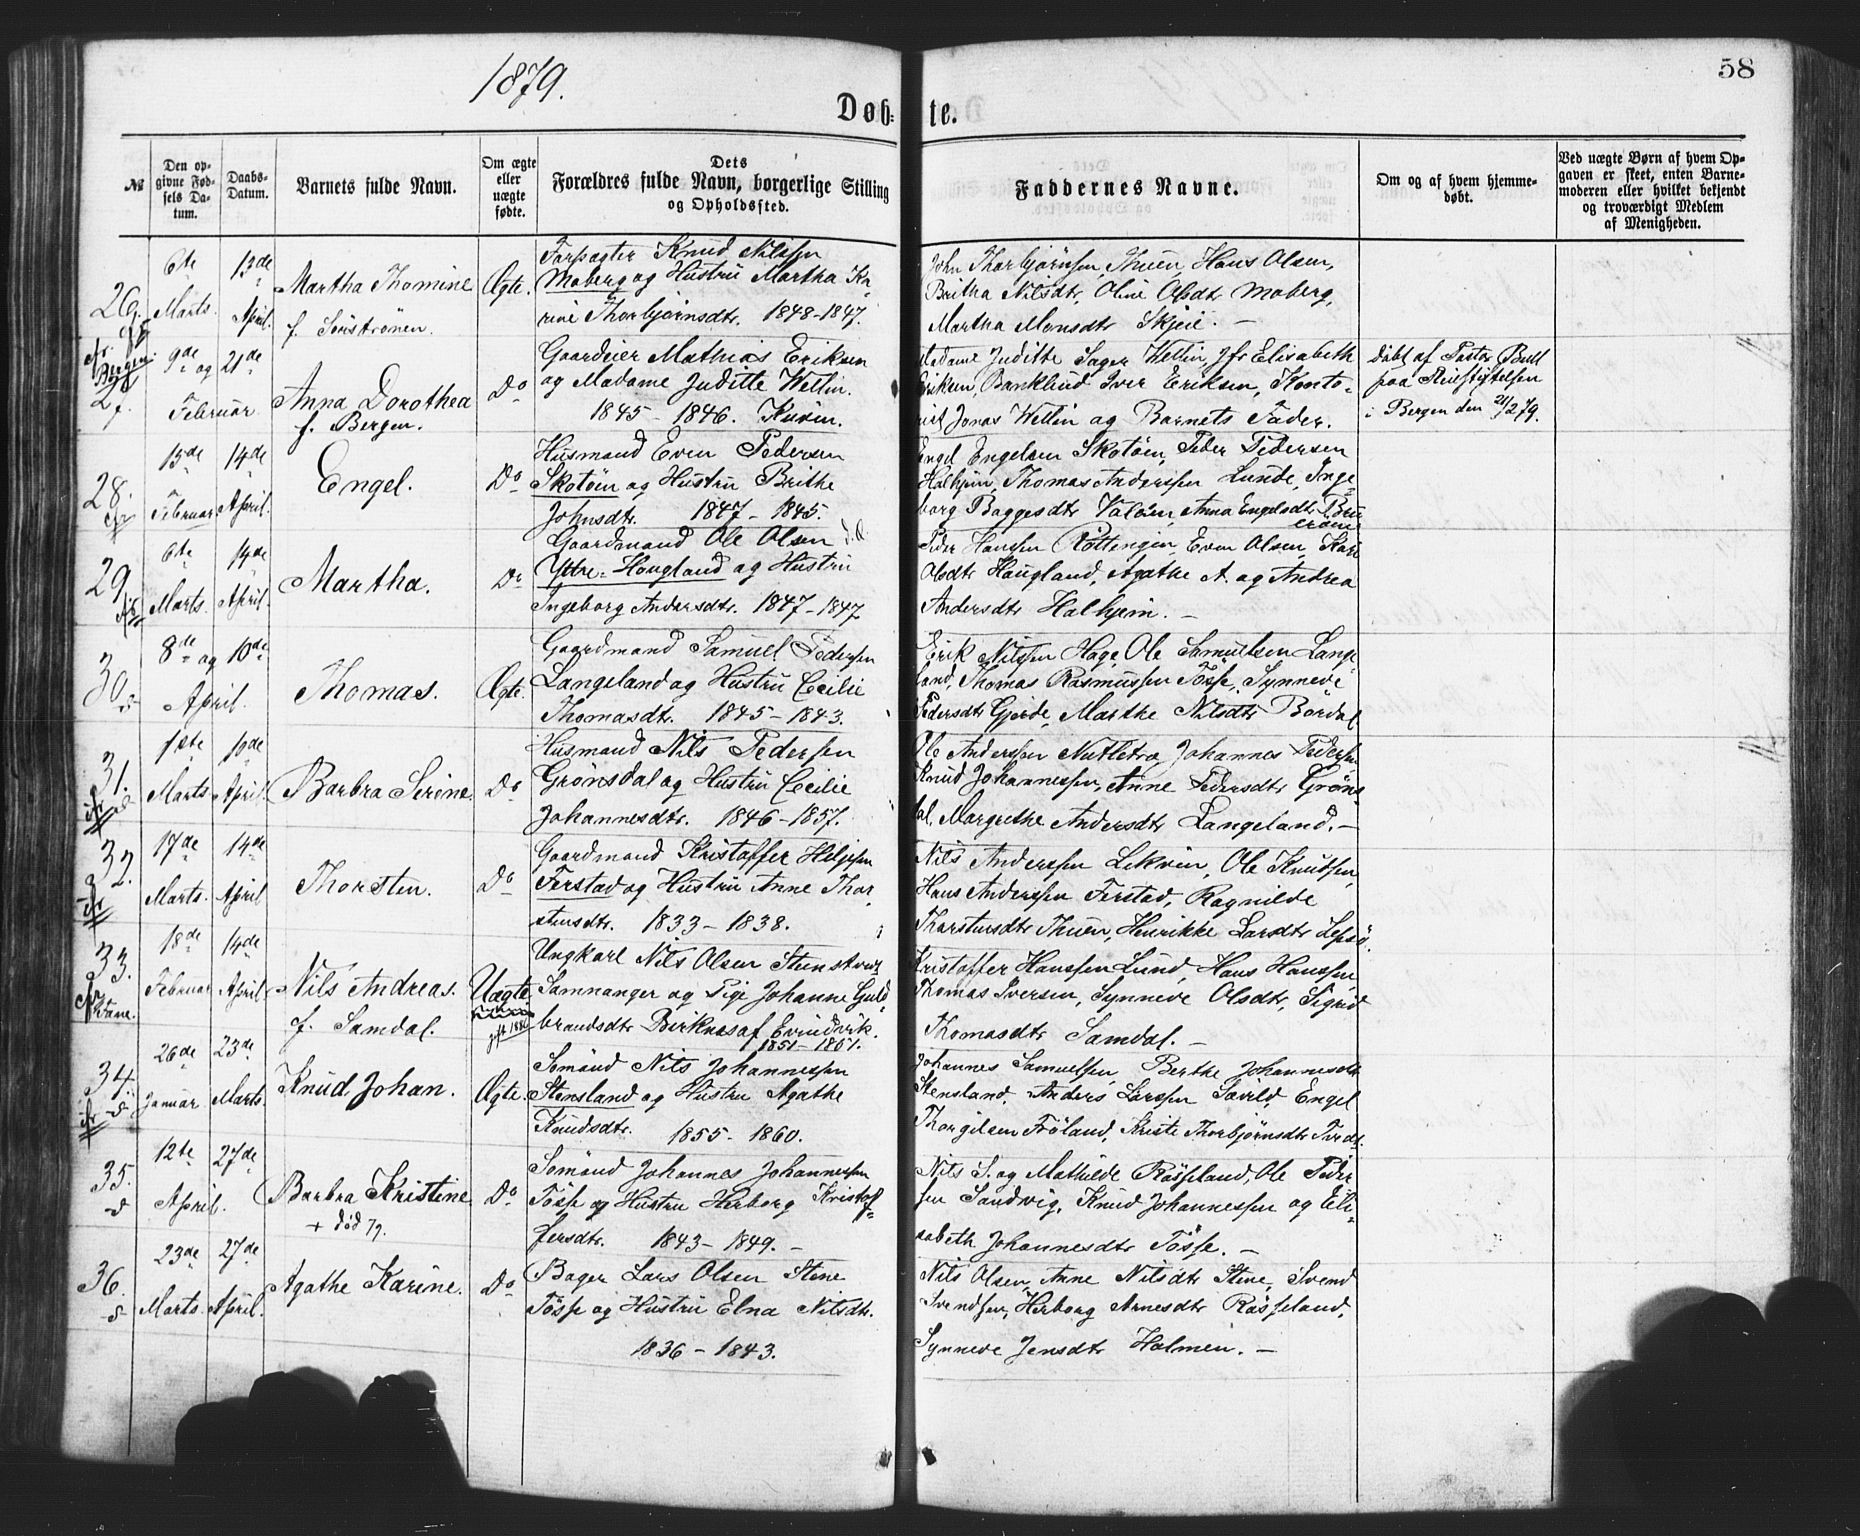 1879.
58
Døbte.
№
Den opgivne Fødsels Datum.
Daabs-Datum.
Barnets fulde Navn.
Om ægte eller uægte fødte.
Dets Forældres fulde Navn, borgerlige Stilling og Opholdssted.
Faddernes Navne.
Om og af hvem hjemmedøbt.
Ved uægte Børn af hvem Opgaven er skeet, enten Barnemoderen eller hvilket bekjendt og troværdigt Medlem af Menigheden.
26.
6te Marts.
13de April.
Martha Thomine
f. Sørstrønen.
Ægte.
Forpagter Knud Nilssen
Moberg og Hustru Martha Ka
rine Thorbjørnsdtr. 1848-1847.
John Thorbjørnsen, Thuen, Hans Olsen,
Britha Nilsdtr, Oline Olsdtr Moberg,
Martha Monsdtr Skjeie. —
Bergen
27.
9de og 21de
Februar
Anna Dorothea
f. Bergen.
Do
Gaardeier Mathias Eriksen
og Madame Juditte Wellin.
1845 - 1846. Kuven.
Madame Juditte Sager Wellin, Jfr Elisabeth
Eriksen, Iver Eriksen, Konto-
rist Jonas Wellin og Barnets Fader.
Døbt af Pastor Bull
paa Pleiestiftelsen
i Bergen den 21/2 79.
28.
15de Februar
14de April.
Engel.
Do
Husmand Even Pedersen
Skotøen og Hustru Brithe
Johnsdtr. 1847 - 1845.
Engel Engelsen Skotøen, Peder Pedersen
Halhjem, Thomas Anderssen Lunde, Inge-
borg Baggesdtr Valøen, Anna Engelsdtr
29.
6te Marts.
14de April.
Martha.
Do
Gaardmand Ole Olsen
Ytre-Hougland og Hustru
Ingeborg Andersdtr. 1847 - 1847
Peder Hanssen Røttengen, Even Olsen, Kari
Olsdtr Haugland, Agathe A. og Andrea
Andersdtr Halhjem. —
30.
8de og 10de
April.
Thomas.
Ægte.
Gaardmand Samuel Pedersen
Langeland og Hustru Cecilie
Thomasdtr. 1845 - 1843.
Erik Nilssen Hage, Ole Samuelsen Lange
land, Thomas Rasmussen Tøsse, Synneve
Pedersdtr Gjerde, Marthe Nilsdtr Bordal
31.
1ste Marts
10de April.
Barbra Serine.
Do
Husmand Nils Pedersen
Grønsdal og Hustru Cecilie
Johannesdtr. 1846 - 1857.
Ole Anderssen Nutletræ, Johannes Pederssen
Knud Johannessen, Anne Pedersdtr Grøns-
dal, Margrethe Andersdtr Langeland. —
32.
17de Marts.
14de April
Thorsten.
Do
Gaardmand Kristoffer Helgesen
Ferstad og Hustru Anne Thor
stensdtr. 1833 - 1838.
Nils Anderssen Lekven, Ole Knutsen,
Hans Anderssen Ferstad, Ragnilde
Thorstensdtr Thuen, Henrikke Larsdtr Lepsø.
33.
Fane.
18de Februar
14de April
Nils Andreas.
f. Samdal.
Uægte
Ungkarl Nils Olsen
Samnanger og Pige Johanne Guld
brandsdtr Birknes af Evindvik.
1851 - 1851.
Kristoffer Hanssen Lund, Hans Hanssen,
Thomas Iversen, Synneve Olsdtr, Sigrid
Thomasdtr Samdal. —
34.
26de Januar
23de Marts.
Knud Johan.
Ægte.
Sømand Nils Johannessen
Stensland og Hustru Agathe
Knudsdtr. 1855 - 1860.
Johannes Samuelsen, Berthe Johannesdtr
Stensland, Anders Larssen Sævild, Engel
Thorgilsen Frøland, Kriste Thorbjørnsdtr
35.
12te 27de
April.
Barbra Kristine
+ død 79.
Do
Sømand Johannes Johannessen
Tøsse og Hustru Herborg Kristof-
fersdtr. 1843 - 1849. —
Nils S. og Mathilde Røsseland, Ole Peder
sen Sandvig, Knud Johannessen og Eli-
sabeth Johannesdtr Tøsse. —
36.
23de Marts.
27de April.
Agathe Karine.
Do
Bager Lars Olsen Stene
Tøsse og Hustru Elna Nilsdtr.
1836 - 1843.
Nils Olsen, Anne Nilsdtr Stene, Svend
Svendsen, Herborg Arnesdtr Røsseland,
Synneve Jensdtr Holmen. —